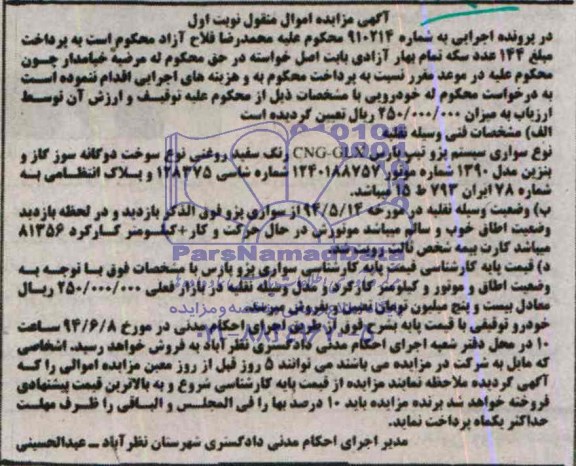 آگهی مزایده اموال منقول نوبت اول
در پرونده اجرایی به شماره ۹۱۰۲۱۴ محکوم علیه محمدرضا فلاح آزاد محکوم است به پرداخت
مبلغ ۱۴۴ عدد سکه تمام بهار آزادی بابت اصل خواسته در حق محکوم له مرضیه خیامدار چون
محکوم علیه در موعد مقرر نسبت به پرداخت محکوم به و هزینه های اجرایی اقدام ننموده است
به درخواست محکوم له خودرویی با مشخصات ذیل از محکوم علیه توقیف و ارزش آن توسط
ارزیاب به میزان ۲۵۰/۰۰۰/۰۰۰ ریال تعیین گردیده است
الف) مشخصات فنی وسیله نقلیه
نوع سواری سیستم پژو تیپ پارس CNG-GLX رنگ سفید روغنی نوع سوخت دوگانه سوز گاز و
بنزین مدل ۱۳۹۰ شماره موتور ۱۲۴۰۱۸۸۷۵۷ شماره شاسی ۱۲۸۳۷۵ و پلاک انتظامی به
شماره ۷۸ ایران ۷۹۳ ط ۱۵ میباشد.
ب) وضعیت وسیله نقلیه در مورخه ۹۴/۵/۱۴ از سواری پژو فوق الذکر بازدید و در لحظه بازدید
وضعیت اطاق خوب و سالم میباشد موتورش در حال حرکت و کار+کیلومتر کارکرد ۸۱۳۵۶
میباشد کارت بیمه شخص ثالث رویت شد.
ParsNamadData
د) قیمت پایه کارشناسی قیمت پایه کارشناسی سواری پژو پارس با مشخصات فوق با توجه به
وضعیت اطاق و موتور و کیلومتر کارکرد و مدل وسیله نقلیه در بازار فعلی ۲۵۰/۰۰۰/۰۰۰ ریال
معادل بیست و پنج میلیون تومان تعیین و بفروش میرسد.
خودرو توقیفی با قیمت پایه بشرح فوق از طریق اجرای احکام مدنی در مورخ ۹۴/۶/۸ ساعت
۱۰ در محل دفتر شعبه اجرای احکام مدنی دادگستری نظرآباد به فروش خواهد رسید. اشخاصی
که مایل به شرکت در مزایده می باشند می توانند ۵ روز قبل از روز معین مزایده اموالی را که
آگهی گردیده ملاحظه نمایند مزایده از قیمت پایه کارشناسی شروع و به بالاترین قیمت پیشنهادی
فروخته خواهد شد برنده مزایده باید ۱۰ درصد بها را فی المجلس و الباقی را ظرف مهلت
حداکثر یکماه پرداخت نماید.
مدیر اجرای احکام مدنی دادگستری شهرستان نظرآباد ــ عبدالحسینی